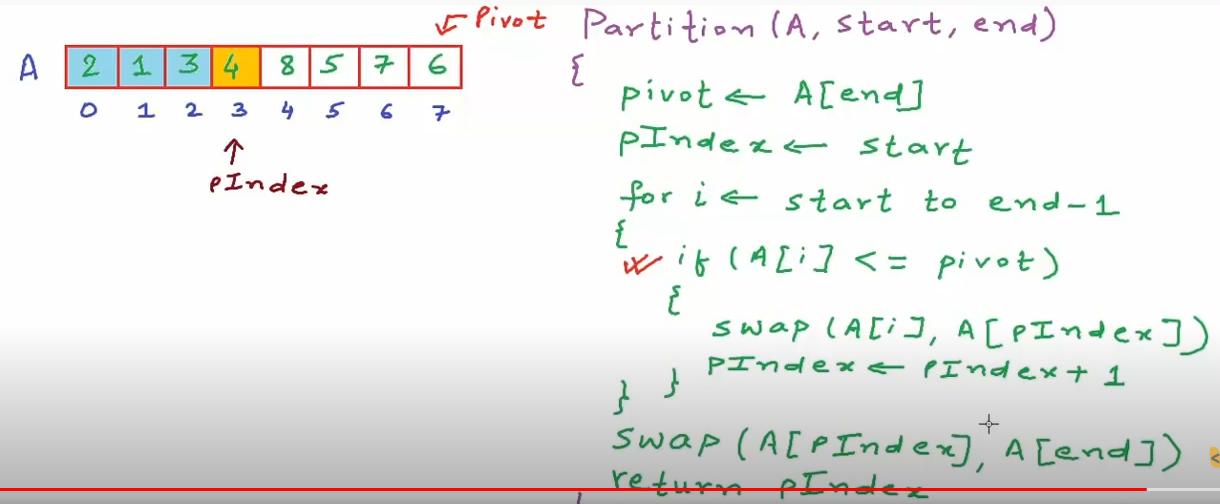 Pivot
A 2 1 3 4 8 5 7 6
0 1 2 3 4 5 6 7
pIndex
Partition (A, start, end)
{
pivot ← A[end]
pIndex ← start
for i ← start to end-1
{
if (A[i] <= pivot)
{
swap (A[i], A[pIndex])
pIndex ← pIndex + 1
} }
swap (A[pIndex], A[end])
return pIndex